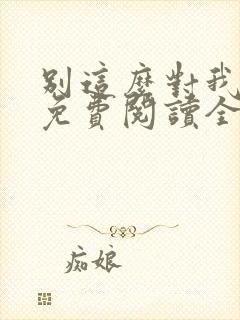 別這麼對我
免費閱讀全
痴娘